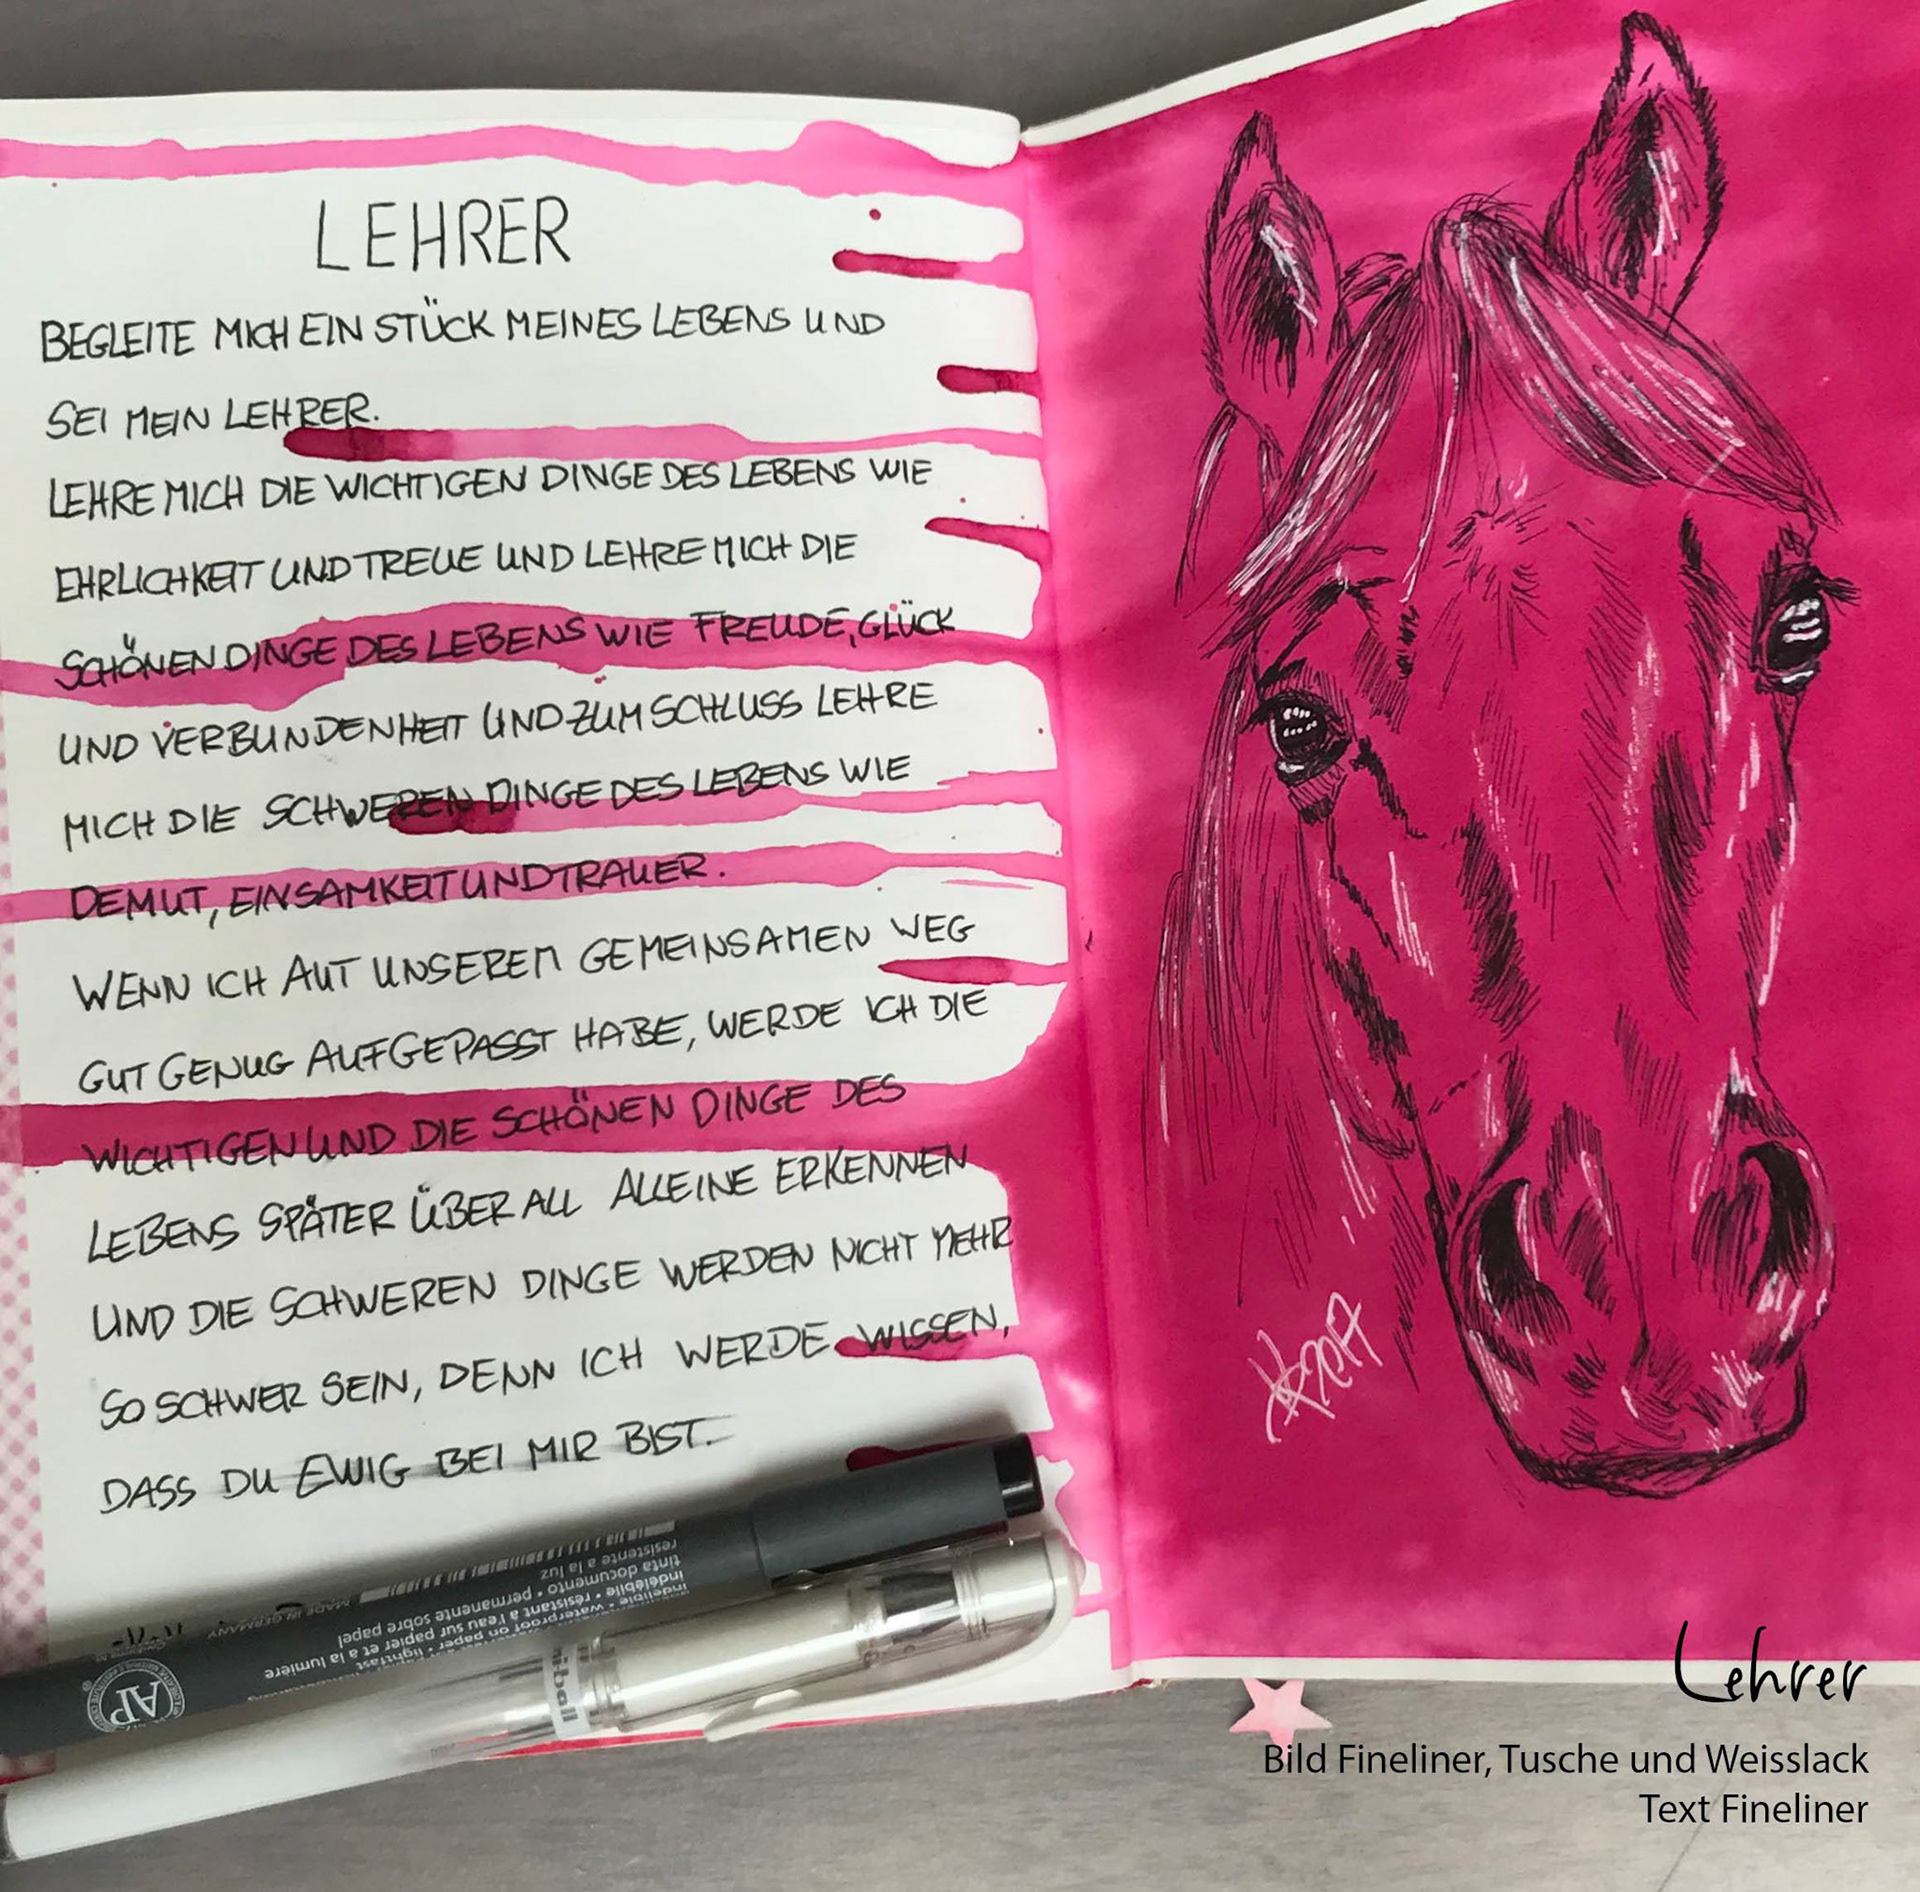 LEHRER
BEGLEITE MICH EIN STÜCK MEINES LEBENS UND
SEI MEIN LEHRER.
LEHRE MICH DIE WICHTIGEN DINGE DES LEBENS WIE
EHRLICHKEIT UND TREUE UND LEHRE MICH DIE
SCHÖNEN DINGE DES LEBENS WIE FREUDE, GLÜCK
UND VERBUNDENHEIT UND ZUM SCHLUSS LEHRE
MICH DIE SCHWEREN DINGE DES LEBENS WIE
DEMUT, EINSAMKEIT UND TRAUER.
WENN ICH AUT UNSEREM GEMEINSAMEN WEG
GUT GENUG AUFGEPASST HABE, WERDE ICH DIE
WICHTIGEN UND DIE SCHÖNEN DINGE DES
LEBENS SPÄTER ÜBERALL ALLEINE ERKENNEN
UND DIE SCHWEREN DINGE WERDEN NICHT MEHR
SO SCHWER SEIN, DENN ICH WERDE WISSEN,
DASS DU EWIG BEI MIR BIST.
2017
AP
MADE IN GERMANY
indélébile • résistant à l'eau sur papier et à la lumière
tinta documento • permanente sobre papel
resistente a la luz
uni-ball
Lehrer
Bild Fineliner, Tusche und Weisslack
Text Fineliner